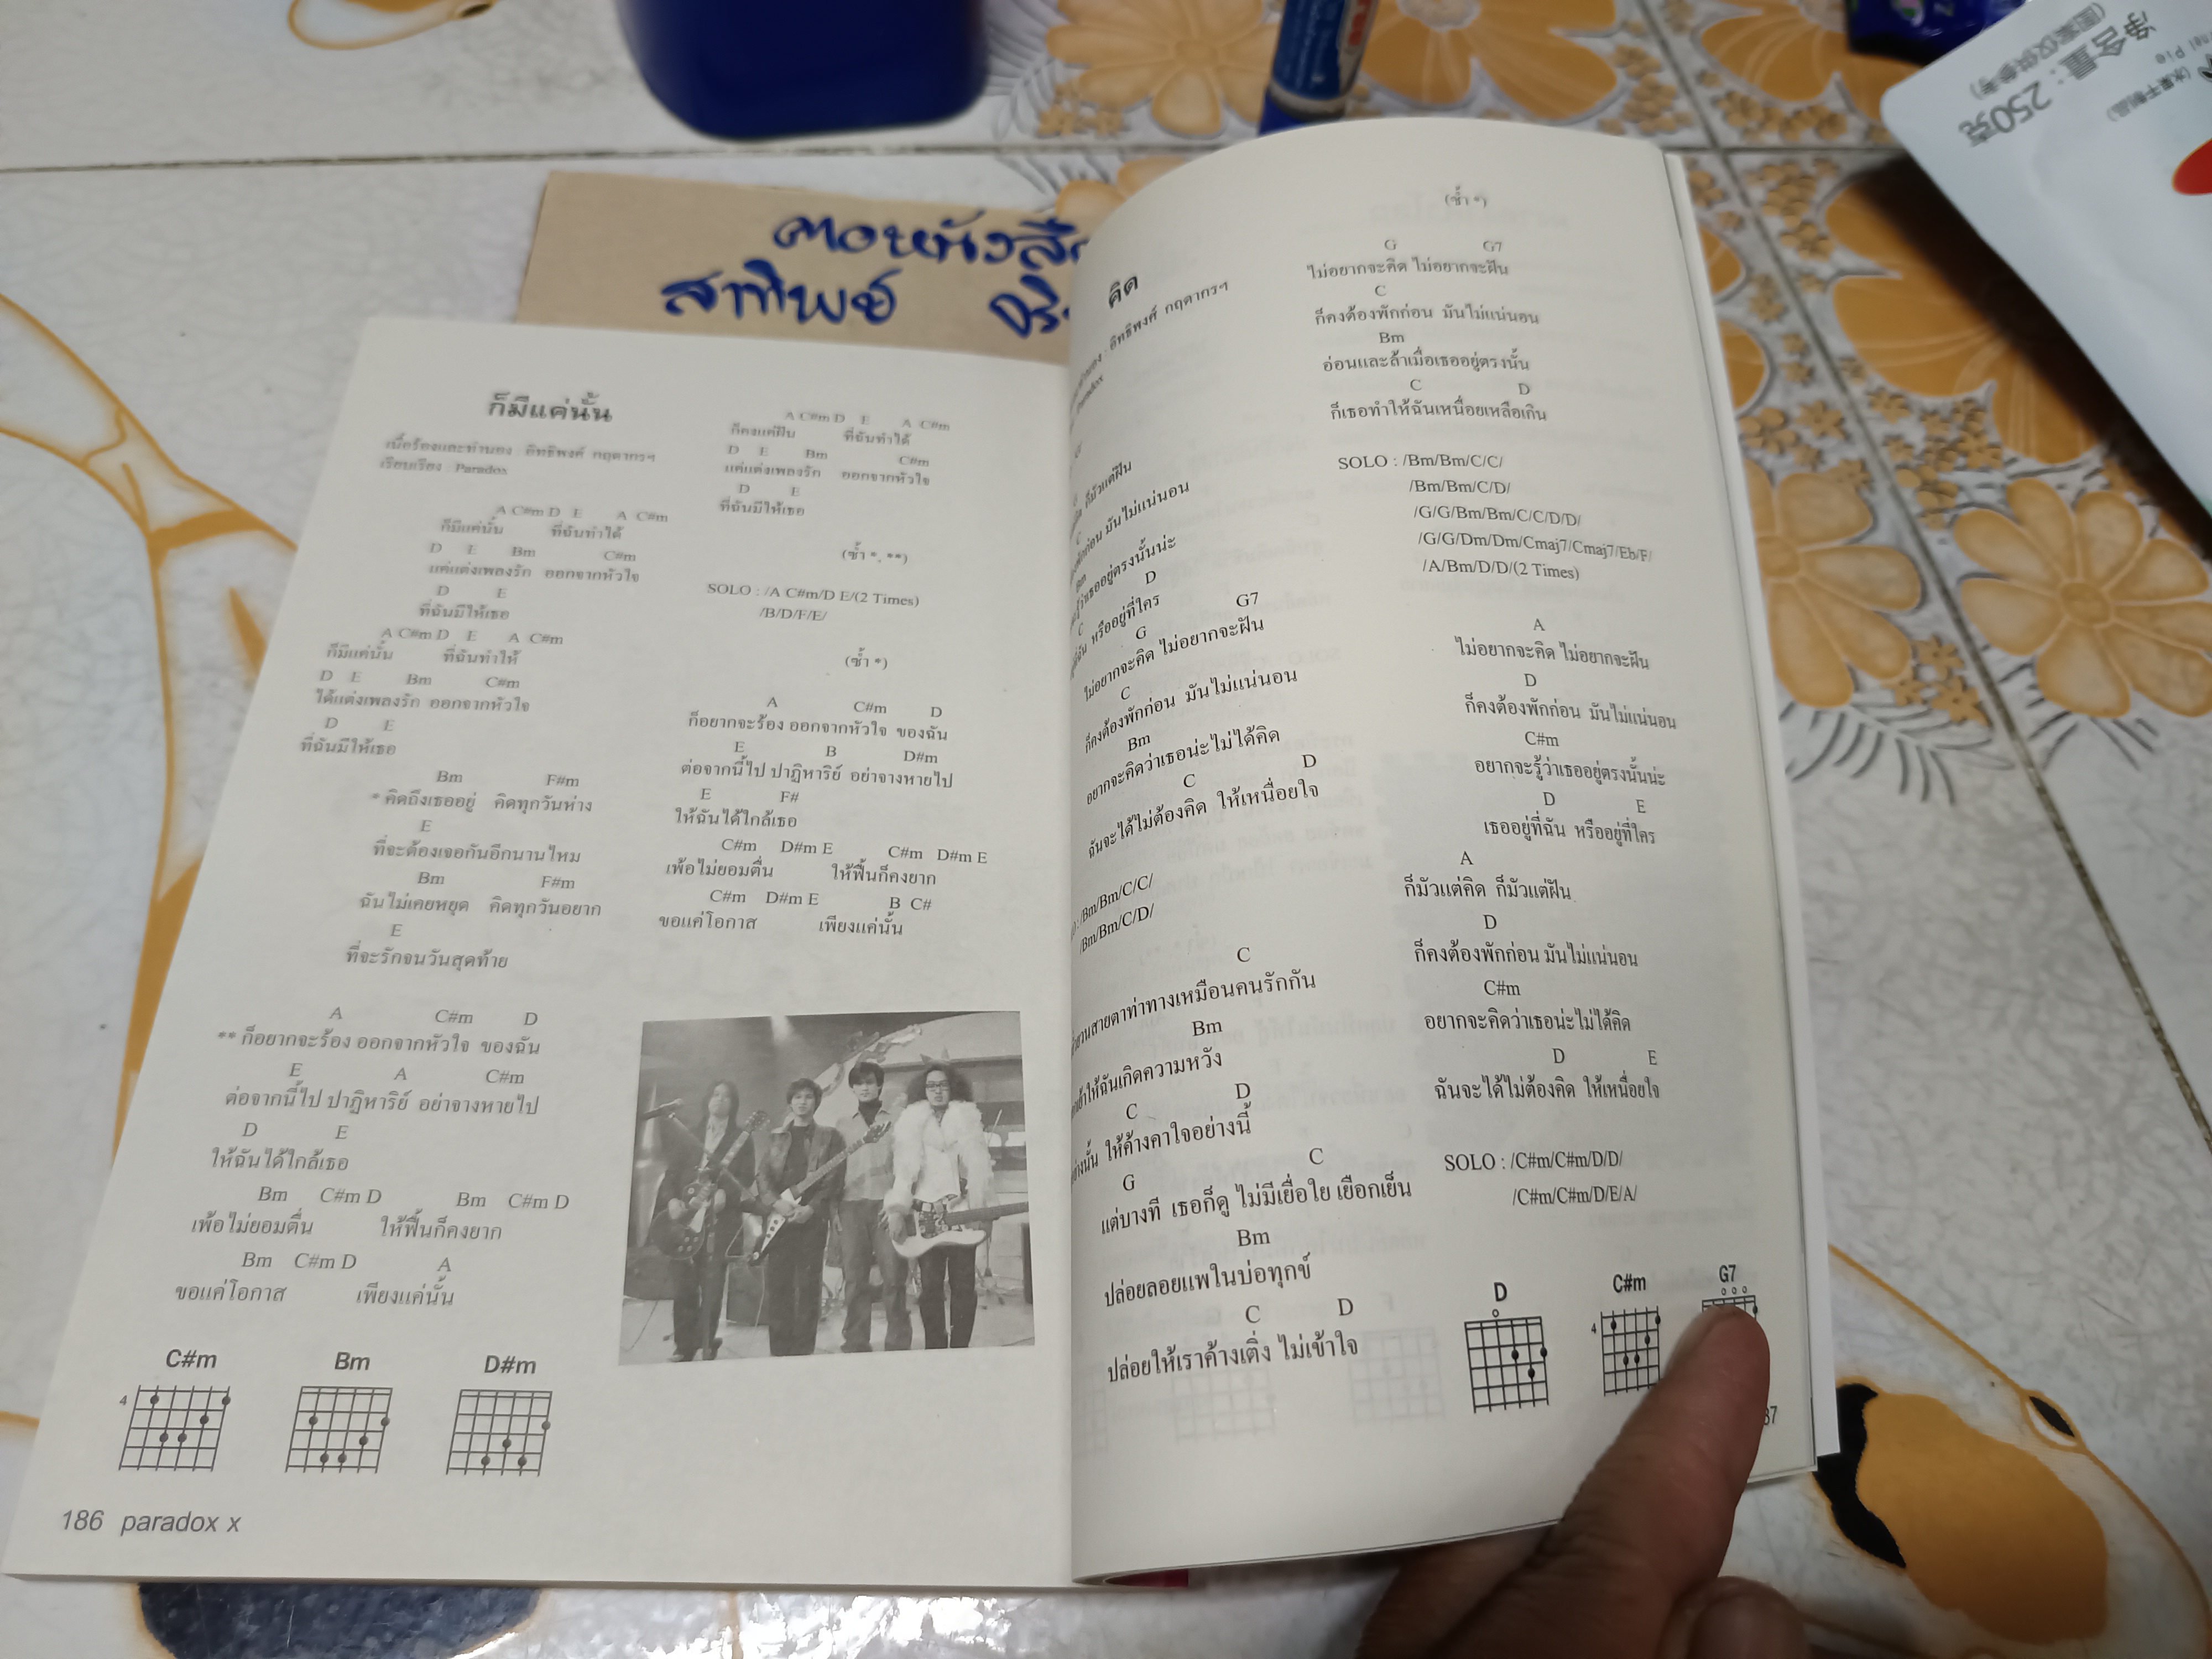 คอหนังสือ
สาทิพย์
ก็มีแค่นั้น
เนื้อร้องและทำนอง : อิทธิพงศ์ กฤดากรฯ
เรียบเรียง : Paradox
A C#m D E A C#m
ก็มีแค่นั้น ที่ฉันทำได้
D E Bm C#m
แค่แต่งเพลงรัก ออกจากหัวใจ
D E
ที่ฉันมีให้เธอ
A C#m D E A C#m
ก็มีแค่นั้น ที่ฉันทำให้
D E Bm C#m
ได้แต่งเพลงรัก ออกจากหัวใจ
D E
ที่ฉันมีให้เธอ
Bm F#m
* คิดถึงเธออยู่ คิดทุกวันห่าง
E
ที่จะต้องเจอกันอีกนานไหม
Bm F#m
ฉันไม่เคยหยุด คิดทุกวันอยาก
E
ที่จะรักจนวันสุดท้าย
A C#m D
** ก็อยากจะร้อง ออกจากหัวใจ ของฉัน
E A C#m
ต่อจากนี้ไป ปาฏิหาริย์ อย่าจางหายไป
D E
ให้ฉันได้ใกล้เธอ
Bm C#m D Bm C#m D
เพ้อไม่ยอมตื่น ให้ฟื้นก็คงยาก
Bm C#m D A
ขอแค่โอกาส เพียงแค่นั้น
C#m Bm D#m
4
186 paradox x
A C#m D E A C#m
ก็คงแค่ฝัน ที่ฉันทำได้
D E Bm C#m
แค่แต่งเพลงรัก ออกจากหัวใจ
D E
ที่ฉันมีให้เธอ
(ซ้ำ *, **)
SOLO : /A C#m/D E/(2 Times)
/B/D/F/E/
(ซ้ำ *)
A C#m D
ก็อยากจะร้อง ออกจากหัวใจ ของฉัน
E B D#m
ต่อจากนี้ไป ปาฏิหาริย์ อย่าจางหายไป
E F#
ให้ฉันได้ใกล้เธอ
C#m D#m E C#m D#m E
เพ้อไม่ยอมตื่น ให้ฟื้นก็คงยาก
C#m D#m E B C#
ขอแค่โอกาส เพียงแค่นั้น
คิด
อิทธิพงศ์ กฤดากรฯ
Paradox
ก็มัวแต่ฝัน
C
พักก่อน มันไม่แน่นอน
Bm
ว่าเธออยู่ตรงนั้นน่ะ
C D
ฉัน หรืออยู่ที่ใคร
G G7
ไม่อยากจะคิด ไม่อยากจะฝัน
C
ก็คงต้องพักก่อน มันไม่แน่นอน
Bm
อยากจะคิดว่าเธอน่ะไม่ได้คิด
C D
ฉันจะได้ไม่ต้องคิด ให้เหนื่อยใจ
/Bm/Bm/C/C/
/Bm/Bm/C/D/
C
สายตาท่าทางเหมือนคนรักกัน
Bm
ให้ฉันเกิดความหวัง
C D
ให้ค้างคาใจอย่างนี้
G C
แต่บางที เธอก็ดู ไม่มีเยื่อใย เยือกเย็น
Bm
ปล่อยลอยแพในบ่อทุกข์
C D
ปล่อยให้เราค้างเติ่ง ไม่เข้าใจ
(ซ้ำ *)
G G7
ไม่อยากจะคิด ไม่อยากจะฝัน
C
ก็คงต้องพักก่อน มันไม่แน่นอน
Bm
อ่อนและล้าเมื่อเธออยู่ตรงนั้น
C D
ก็เธอทำให้ฉันเหนื่อยเหลือเกิน
SOLO : /Bm/Bm/C/C/
/Bm/Bm/C/D/
/G/G/Bm/Bm/C/C/D/D/
/G/G/Dm/Dm/Cmaj7/Cmaj7/Eb/F/
/A/Bm/D/D/(2 Times)
A
ไม่อยากจะคิด ไม่อยากจะฝัน
D
ก็คงต้องพักก่อน มันไม่แน่นอน
C#m
อยากจะรู้ว่าเธออยู่ตรงนั้นน่ะ
D E
เธออยู่ที่ฉัน หรืออยู่ที่ใคร
A
ก็มัวแต่คิด ก็มัวแต่ฝัน
D
ก็คงต้องพักก่อน มันไม่แน่นอน
C#m
อยากจะคิดว่าเธอน่ะไม่ได้คิด
D E
ฉันจะได้ไม่ต้องคิด ให้เหนื่อยใจ
SOLO : /C#m/C#m/D/D/
/C#m/C#m/D/E/A/
D C#m G7
4
87
净含量：250克